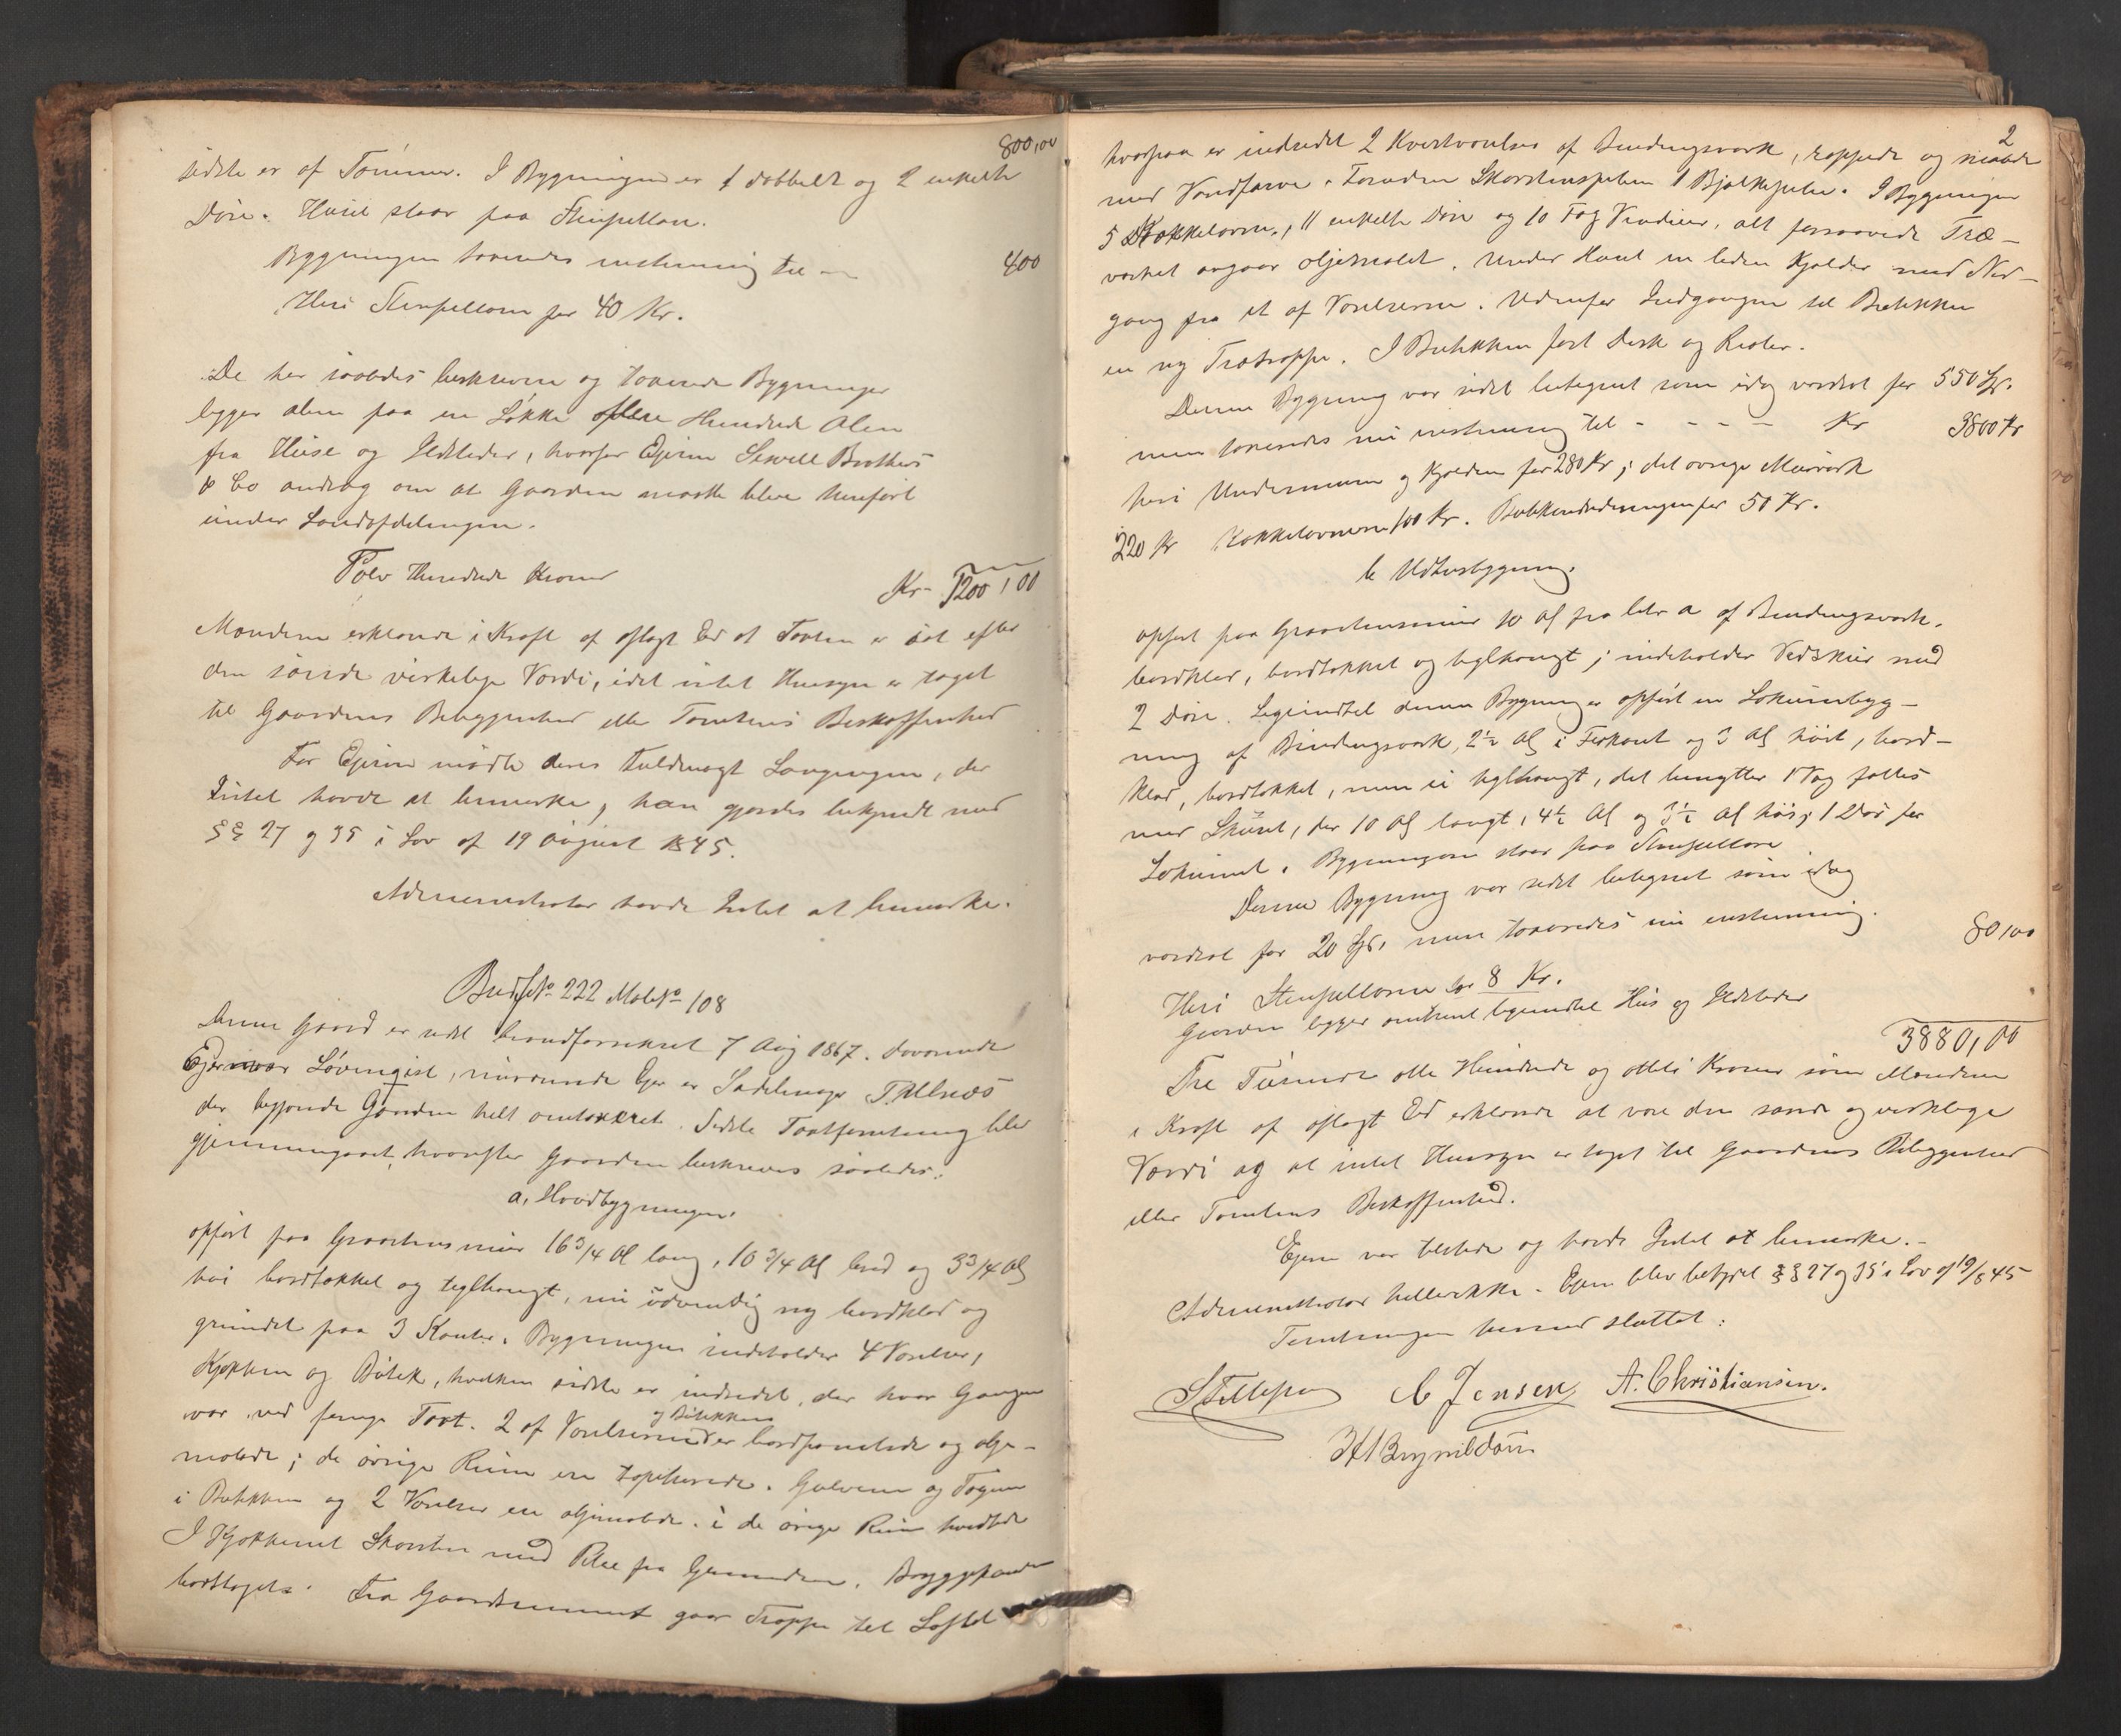 800,00
sidste er af Tømmer. I Bygningen er 1 dobbelt og 2 enkelte
Døre. Huset staar paa Stenpillar.
Bygningen taxeredes enstemmig til
400
Heri Stenpillarne for 40 Kr.
De her saaledes beskrevne og taxerede Bygninger
ligger alene paa en Løkke flere Hundrede Alen
fra Huse og Ildsteder, hvorfor Ejerne Sewell Brothers
& Co androg om at Gaarden maatte blive henført
under Landafdelingen.
Tolv Hundrede Kroner
Kr. 1200,00
Mændene erklærede i Kraft af aflagt Ed at Taxten er sat efter
den sande virkelige Værdi, idet intet Hensyn er taget
til Gaardens Beliggenhed eller Tomtens Beskaffenhed
For Ejerne mødte deres Fuldmægt Langengen, der
Intet havde at bemærke, han gjordes bekjendt med
§§ 27 og 35 i Lov af 19 August 1845.
Administrator havde Intet at bemærke.
Budst No 222 Mat No 108
Denne Gaard er sidst brandforsikret 7 Aug 1867. daværende
Ejer var Løvenqist, nuværende Ejer er Sadelmager T. Ulnæs
der begjærede Gaarden helt omtaxeret. Sidste Taxtforretning blev
gjennemgaaet, hvorefter Gaarden beskreves saaledes:
a. Hovedbygningen.
opført paa Graastensmur 16 3/4 Al lang, 10 3/4 Al bred og 3 3/4 Al
høi bordtækket og teglhængt, nu udvendig ny bordklæd og
grundet paa 3 Kanter. Bygningen indeholder 4 Værelser,
Kjøkken og Butik, hvilken sidste er indredet, der hvor Gangen
og Butikken
var ved forrige Taxt. 2 af Værelserne er bordpanelede og olje-
malede; de øvrige Rum ere tapetserede. Gulvene og Tagene
i Butikken og 2 Værelser ere oljemalede. i de øvrige Rum hvidtede
I Kjøkkenet Skorsten med Pibe fra Grunden. Bryggepanden
borttaget. Fra Gaardsrummet gaar Trappe til Loftet
2
hvorpaa er indredet 2 Kvistværelser af Bindingsværk, rappede og malede
med Vandfarve. Foruden Skorstenspiben 1 Bjælkepibe. I Bygningen
5 Kakkelovne, 11 enkelte Døre og 10 Fag Vinduer, alt forsaavidt Træ-
værket angaar oljemalet. Under Huset en liden Kjælder med Ned-
gang fra et af Værelserne. Udenfor Indgangen til Butikken
en ny Trætrappe. I Butikken fast Disk og Reoler.
Denne Bygning var sidst betegnet som idag værdsat for 550 Spd.
men taxeredes nu enstemmig til - - - - Kr
3800 Kr
heri Undermuren og Kjælderen for 280 Kr; det øvrige Murværk
220 Kr Kakkelovnene 100 Kr. Butikindredningen for 50 Kr.
b Udhusbygning.
opført paa Graastensmur 10 Al fra litr a af Bindingsværk.
bordklæd, bordtækket og teglhængt; indeholder Vedskur med
2 Døre. Ligeindtil denne Bygning er opført en Lokumsbyg-
ning af Bindingsværk, 2 1/2 Al i Firkant og 3 Al høit, bord-
klæd, bordtækket, men ei teglhængt, det benytter Væg fælles
med Skuret, der 10 Al langt, 4 1/2 Al og 3 1/2 Al høi; 1 Dør for
Lokumet. Bygningerne staar paa Stenpillare
Denne Bygning var sidst betegnet som idag
værdsat for 20 Spd. men taxeredes nu enstemmig.
80,00
Heri Stenpillarne for 8 Kr.
Gaarden ligger omtrent ligeindtil Hus og Ildsteder
3880,00
Tre Tusende otte Hundrede og otteti Kroner som Mændene
i Kraft af aflagt Ed erklærede at være den sande og virkelige
Værdi og at intet Hensyn er taget til Gaardens Beliggenhed
eller Tomtens Beskaffenhed.
Ejeren var tilstede og havde Intet at bemærke.-
Administrator hellerikke. Ejeren blev betydet §§ 27 og 35 i Lov af 19/8 45
Forretningen hermed sluttet:
C Jensen A. Christiansen.
H Brynildsen